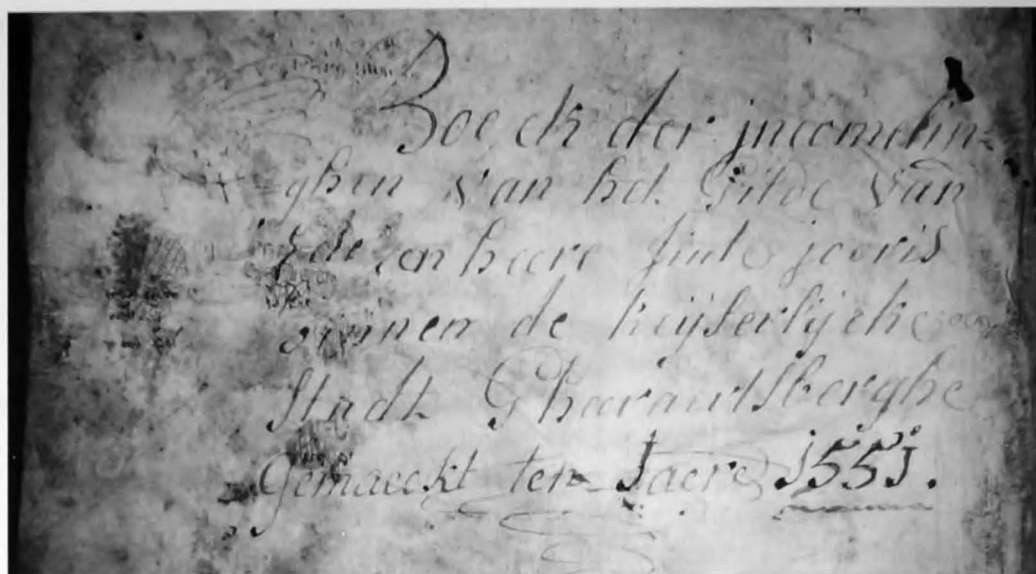 Boeck der jncomelin=
ghen van het Gilde van
Edelen heere sinte jooris
binnen de keijserlijcke
Stadt Gheeraurtsberghe
Gemaeckt ten Jaere 1551.